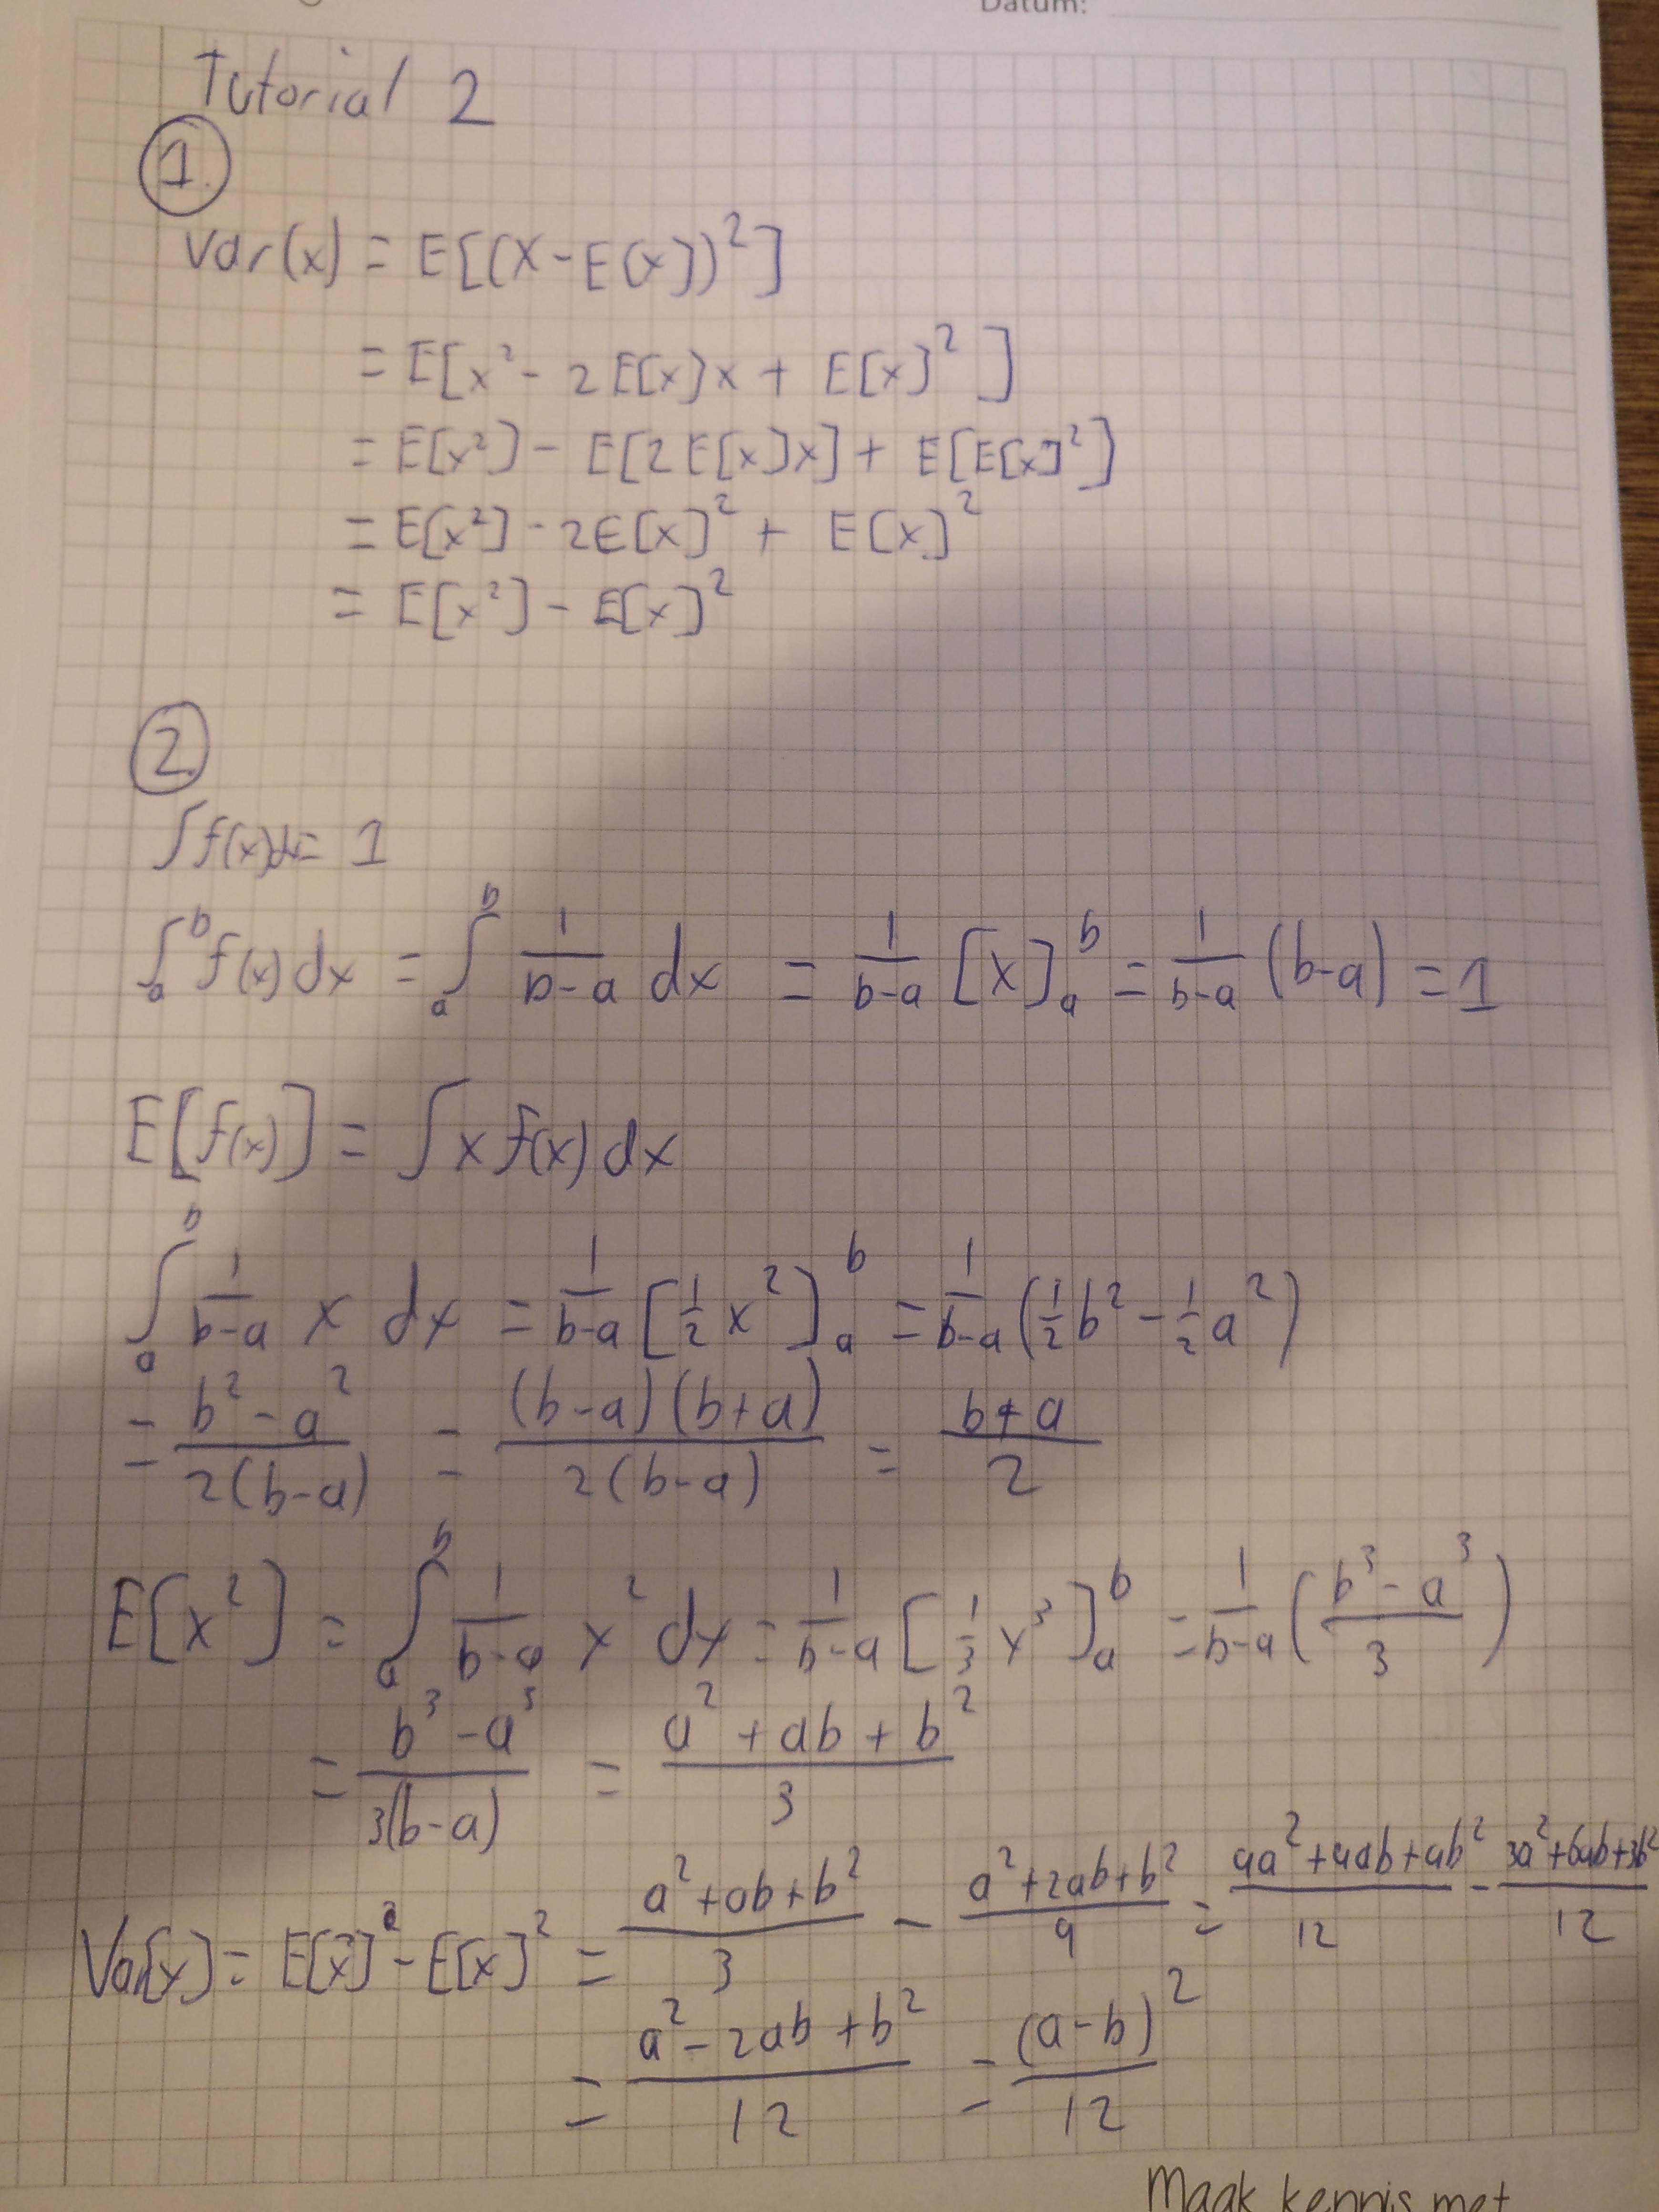 Datum:
Tutorial 2
1.
Var(x) = E[(X-E(x])²]
= E[x² - 2E[x]x + E[x]²]
= E[x²] - E[2E[x]x] + E[E[x]²]
= E[x²] - 2E[x]² + E[x]²
= E[x²] - E[x]²
2.
∫f(x)dx = 1
∫_a^b f(x) dx = ∫_a^b 1/(b-a) dx = 1/(b-a) [x]_a^b = 1/(b-a) (b-a) = 1
E[f(x)] = ∫ x f(x) dx
∫_a^b 1/(b-a) x dx = 1/(b-a) [1/2 x²]_a^b = 1/(b-a) (1/2 b² - 1/2 a²)
= (b² - a²)/(2(b-a)) = ((b-a)(b+a))/(2(b-a)) = (b+a)/2
E[x²] = ∫_a^b 1/(b-a) x² dx = 1/(b-a) [1/3 x³]_a^b = 1/(b-a) ((b³ - a³)/3)
= (b³ - a³)/(3(b-a)) = (a² + ab + b²)/3
Var[x] = E[x²] - E[x]² = (a² + ab + b²)/3 - (a² + 2ab + b²)/4 = (4a² + 4ab + 4b²)/12 - (3a² + 6ab + 3b²)/12
= (a² - 2ab + b²)/12 = (a-b)²/12
Maak kennis met